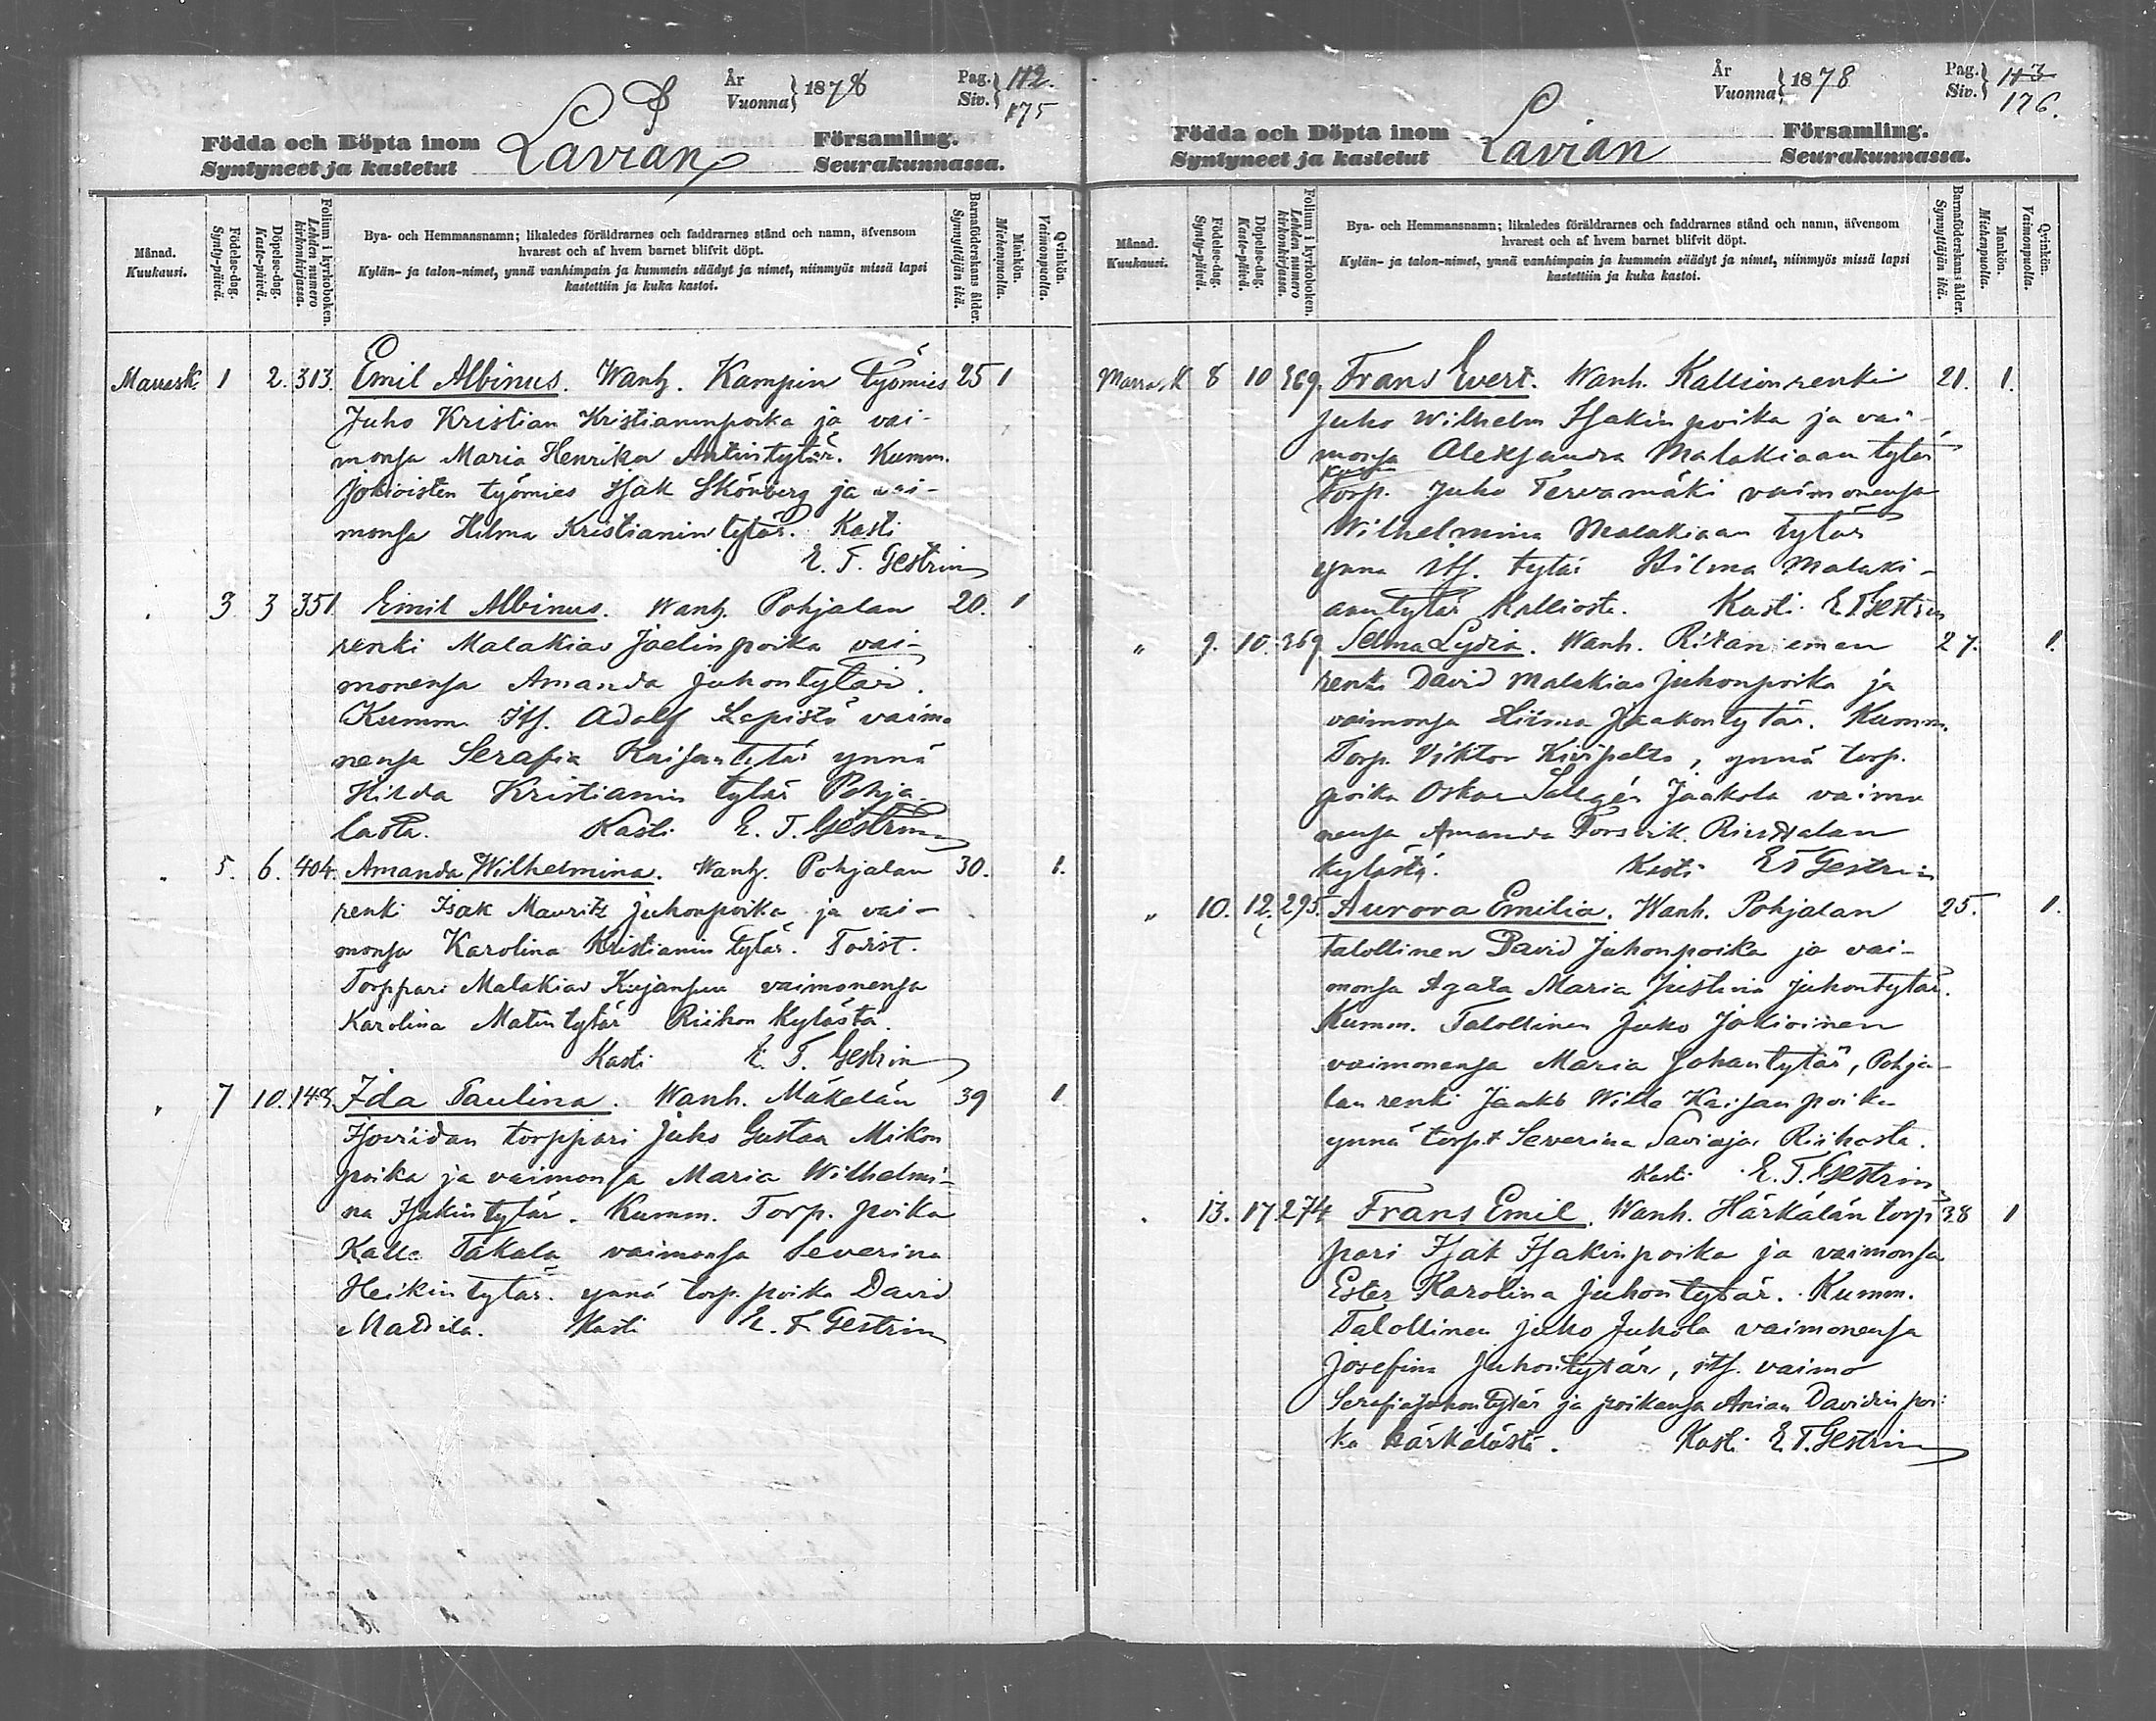 År
Vuonna } 1878
Pag.
Siv. } 112.
175
Födda och Döpta inom Lavian Församling.
Syntyneet ja kastetut Seurakunnassa.
Månad.
Kuukausi.
Födelse-dag.
Synty-päivä.
Döpelse-dag.
Kaste-päivä.
Folium i kyrkoboken.
Lehden numero kirkonkirjassa.
Bya- och Hemmansnamn; likaledes föräldrarnes och faddrarnes stånd och namn, äfvensom
hvarest och af hvem barnet blifvit döpt.
Kylän- ja talon-nimet, ynnä vanhimpain ja kummein säädyt ja nimet, niinmyös missä lapsi
kastettiin ja kuka kastoi.
Barnaföderskans ålder.
Synnyttäjän ikä.
Mankön.
Miehenpuolta.
Qvinkön.
Vaimonpuolta.
Marrask. 1 2. 313. Emil Albinus. Wanh. Kampin työmies 25 1
Juho Kristian Kristianinpoika ja vai-
monsa Maria Henrika Antintytär. Kumm.
Jokioisten työmies Isak Skönberg ja vai-
monsa Hilma Kristianintytär. Kasti
E. T. Gestrin
3. 3 351 Emil Albinus. Wanh. Pohjalan 20. 1
renki Malakias Joelinpoika vai-
monensa Amanda Juhontytär.
Kumm. Itf. Adolf Lepistö vaimo
nensa Serafia Kaisantytär ynnä
Hilda Kristianin tytär Pohja-
lasta. Kasti E. T. Gestrin
" 5. 6. 404. Amanda Wilhelmina. Wanh. Pohjalan 30. 1.
renki Isak Mauritz Juhonpoika ja vai-
monsa Karolina Kristianin tytär. Todist.
Torppari Malakias Kujansuu vaimonensa
Karolina Matintytär Riihon kylästä.
Kasti E. T. Gestrin
" 7 10. 149. Ida Paulina. Wanh. Mäkelän 39 1
torppari Juho Gustaa Mikon
poika ja vaimonsa Maria Wilhelmi-
na Isakintytär. Kumm. Torp. poika
Kalle Takala vaimonsa Severina
Heikintytär. ynnä torp. poika David
Mattila. Kasti E. T. Gestrin
År
Vuonna } 1878
Pag.
Siv. } 113
176.
Födda och Döpta inom Lavian Församling.
Syntyneet ja kastetut Seurakunnassa.
Månad.
Kuukausi.
Födelse-dag.
Synty-päivä.
Döpelse-dag.
Kaste-päivä.
Folium i kyrkoboken.
Lehden numero kirkonkirjassa.
Bya- och Hemmansnamn; likaledes föräldrarnes och faddrarnes stånd och namn, äfvensom
hvarest och af hvem barnet blifvit döpt.
Kylän- ja talon-nimet, ynnä vanhimpain ja kummein säädyt ja nimet, niinmyös missä lapsi
kastettiin ja kuka kastoi.
Barnaföderskans ålder.
Synnyttäjän ikä.
Mankön.
Miehenpuolta.
Qvinkön.
Vaimonpuolta.
Marrask 8 10 369. Frans Evert. Wanh. Kallion renki 21. 1.
Juho Wilhelm Isakinpoika ja vai-
monsa Aleksandra Malakiaan tytär
Torp. Juho Tervamäki vaimonensa
Wilhelmina Malakiaan tytär
ynnä itf. tytär Hilma Malaki-
aantytär Kalliosta. Kasti E T Gestrin
" 9. 10. 369 Selma Lydia. Wanh. Ritaniemen 27. 1.
renki David Malakias Juhonpoika ja
vaimonsa Hilma Jaakontytär. Kumm.
Torp. Viktor Kivipelto, ynnä torp.
poika Oskar Jaakola vaimo
nensa Amanda Forsvik.
kylästä. Kasti E T Gestrin
" 10. 12. 295. Aurora Emilia. Wanh. Pohjalan 25. 1.
talollinen David Juhonpoika ja vai-
monsa Agata Maria Justina Juhontytär.
Kumm. Talollinen Juho Jokioinen
vaimonensa Maria Johantytär, Pohja-
lan renki Jaakko Wille Kaisanpoika
ynnä torp.t Severina Savioja Riihosta.
Kasti E. T. Gestrin
13. 17. 274 Frans Emil. Wanh. Härkälän torp 38 1
pari Isak Isakinpoika ja vaimonsa
Ester Karolina Juhontytär. Kumm.
Talollinen Juho Juhola vaimonensa
Josefina Juhontytär, itf. vaimo
Serafia Juhontytär ja poikansa Davidin poi-
ka Härkälästä. Kasti E. T. Gestrin